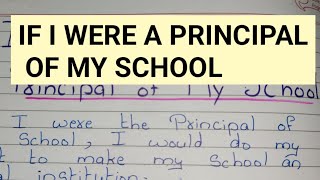 IF I WERE A PRINCIPAL
OF MY SCHOOL
Principal of My School
I were the Principal of
School, I would do my
t to make my School an
al institution.